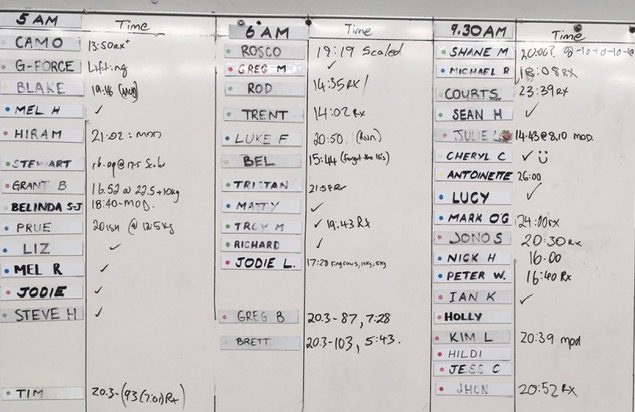 5 AM Time
CAMO 13:50RX+
G-FORCE Lifting
BLAKE 19:16 (Mod)
MEL H ✓
HIRAM 21:02 : MOD
STEWART 16.09@17.5
GRANT B 16.52 @ 22.5+10kg
BELINDA S-J 18:40-MOD.
PRUE @ 12.5kg
LIZ ✓
MEL R ✓
JODIE ✓
STEVE H ✓
TIM 20.3-(93(7:01)Rx)
6 AM Time
ROSCO 19:19 Scaled
GREG M ✓
ROD 14:35RX
TRENT 14:02Rx
LUKE F 20:50 (Run)
BEL 15:44 (forgot the 16's)
TRISTAN
MATTY ✓
TROY M ✓ 19:43 Rx
RICHARD ✓
JODIE L. 17:28
GREG B 20.3-87, 7:28
BRETT 20.3-103, 5:43.
9.30AM Time
SHANE M
MICHAEL R 18:08RX
COURTS 23:39RX
SEAN H ✓
JULIE 14:43@8,10 mod.
CHERYL C ✓
ANTOINETTE 26:00
LUCY ✓
MARK O'G 24:00RX
JONO S 20:30RX
NICK H 16:00
PETER W. 16:40 Rx
IAN K ✓
HOLLY
KIM L 20:39 mod
HILDI
JESS C
JHON 20:52 RX